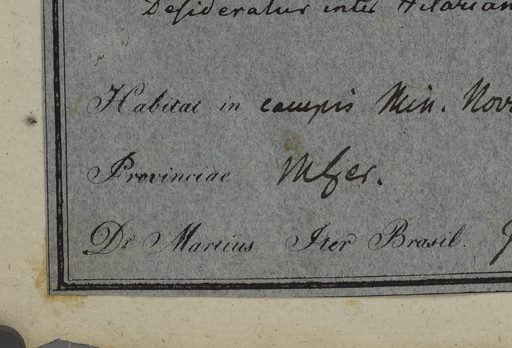 Desideratur inter Hilarian
Habitat in campis Min. Nov
Provinciae MGer.
Dr Martius Iter Brasil.